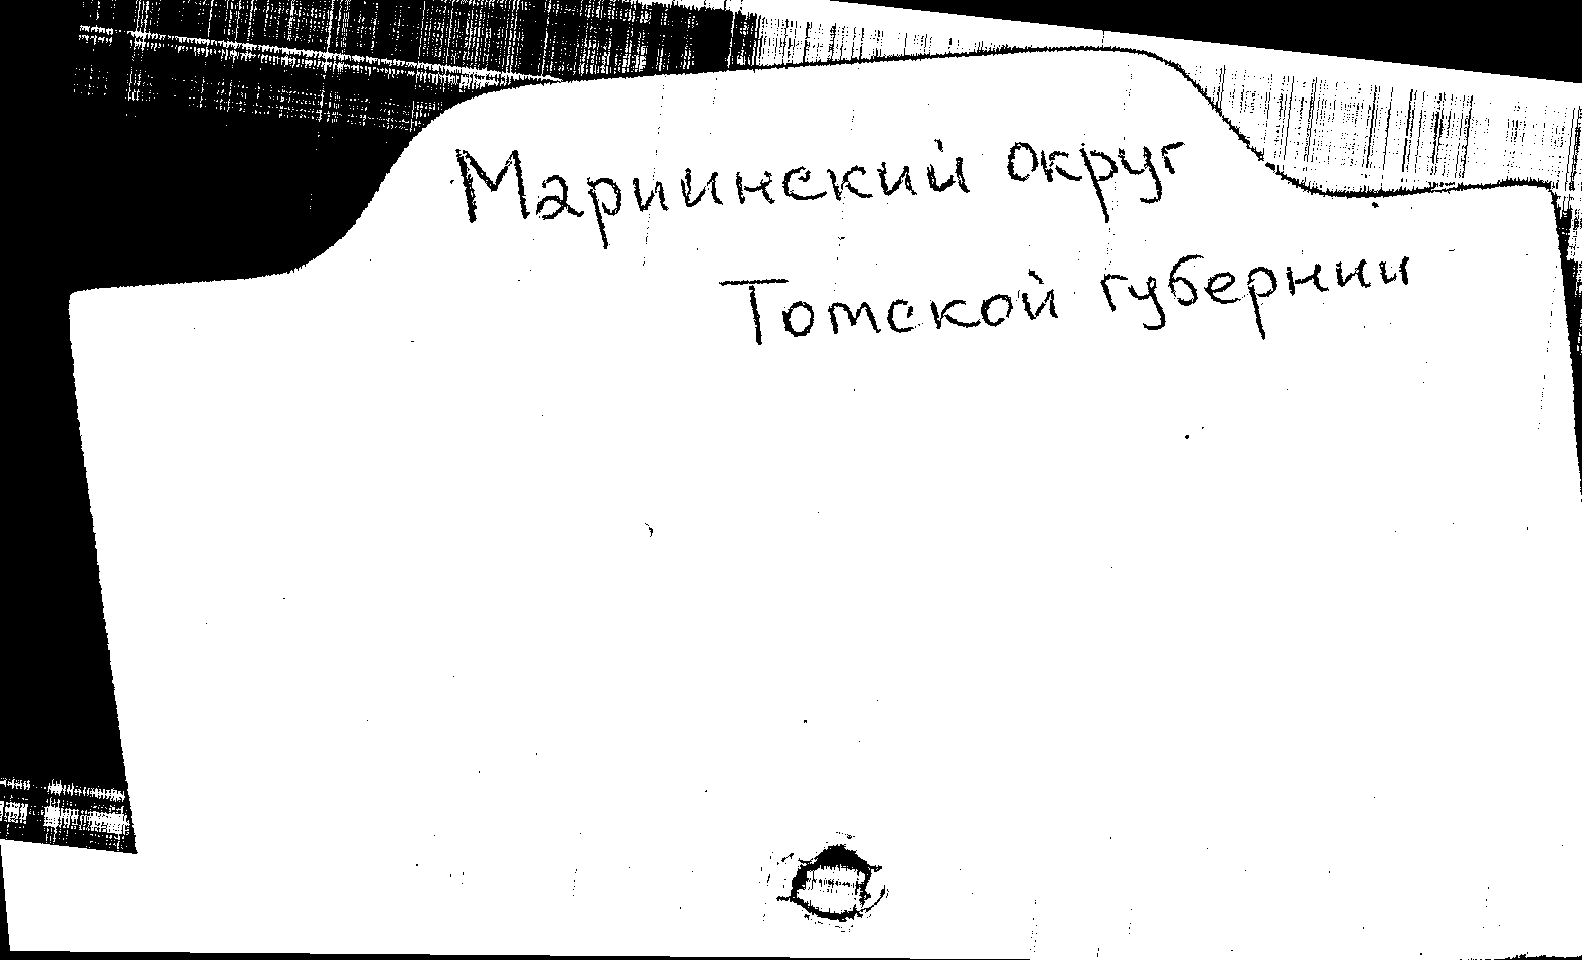 Мариинский округ
Томской губернии